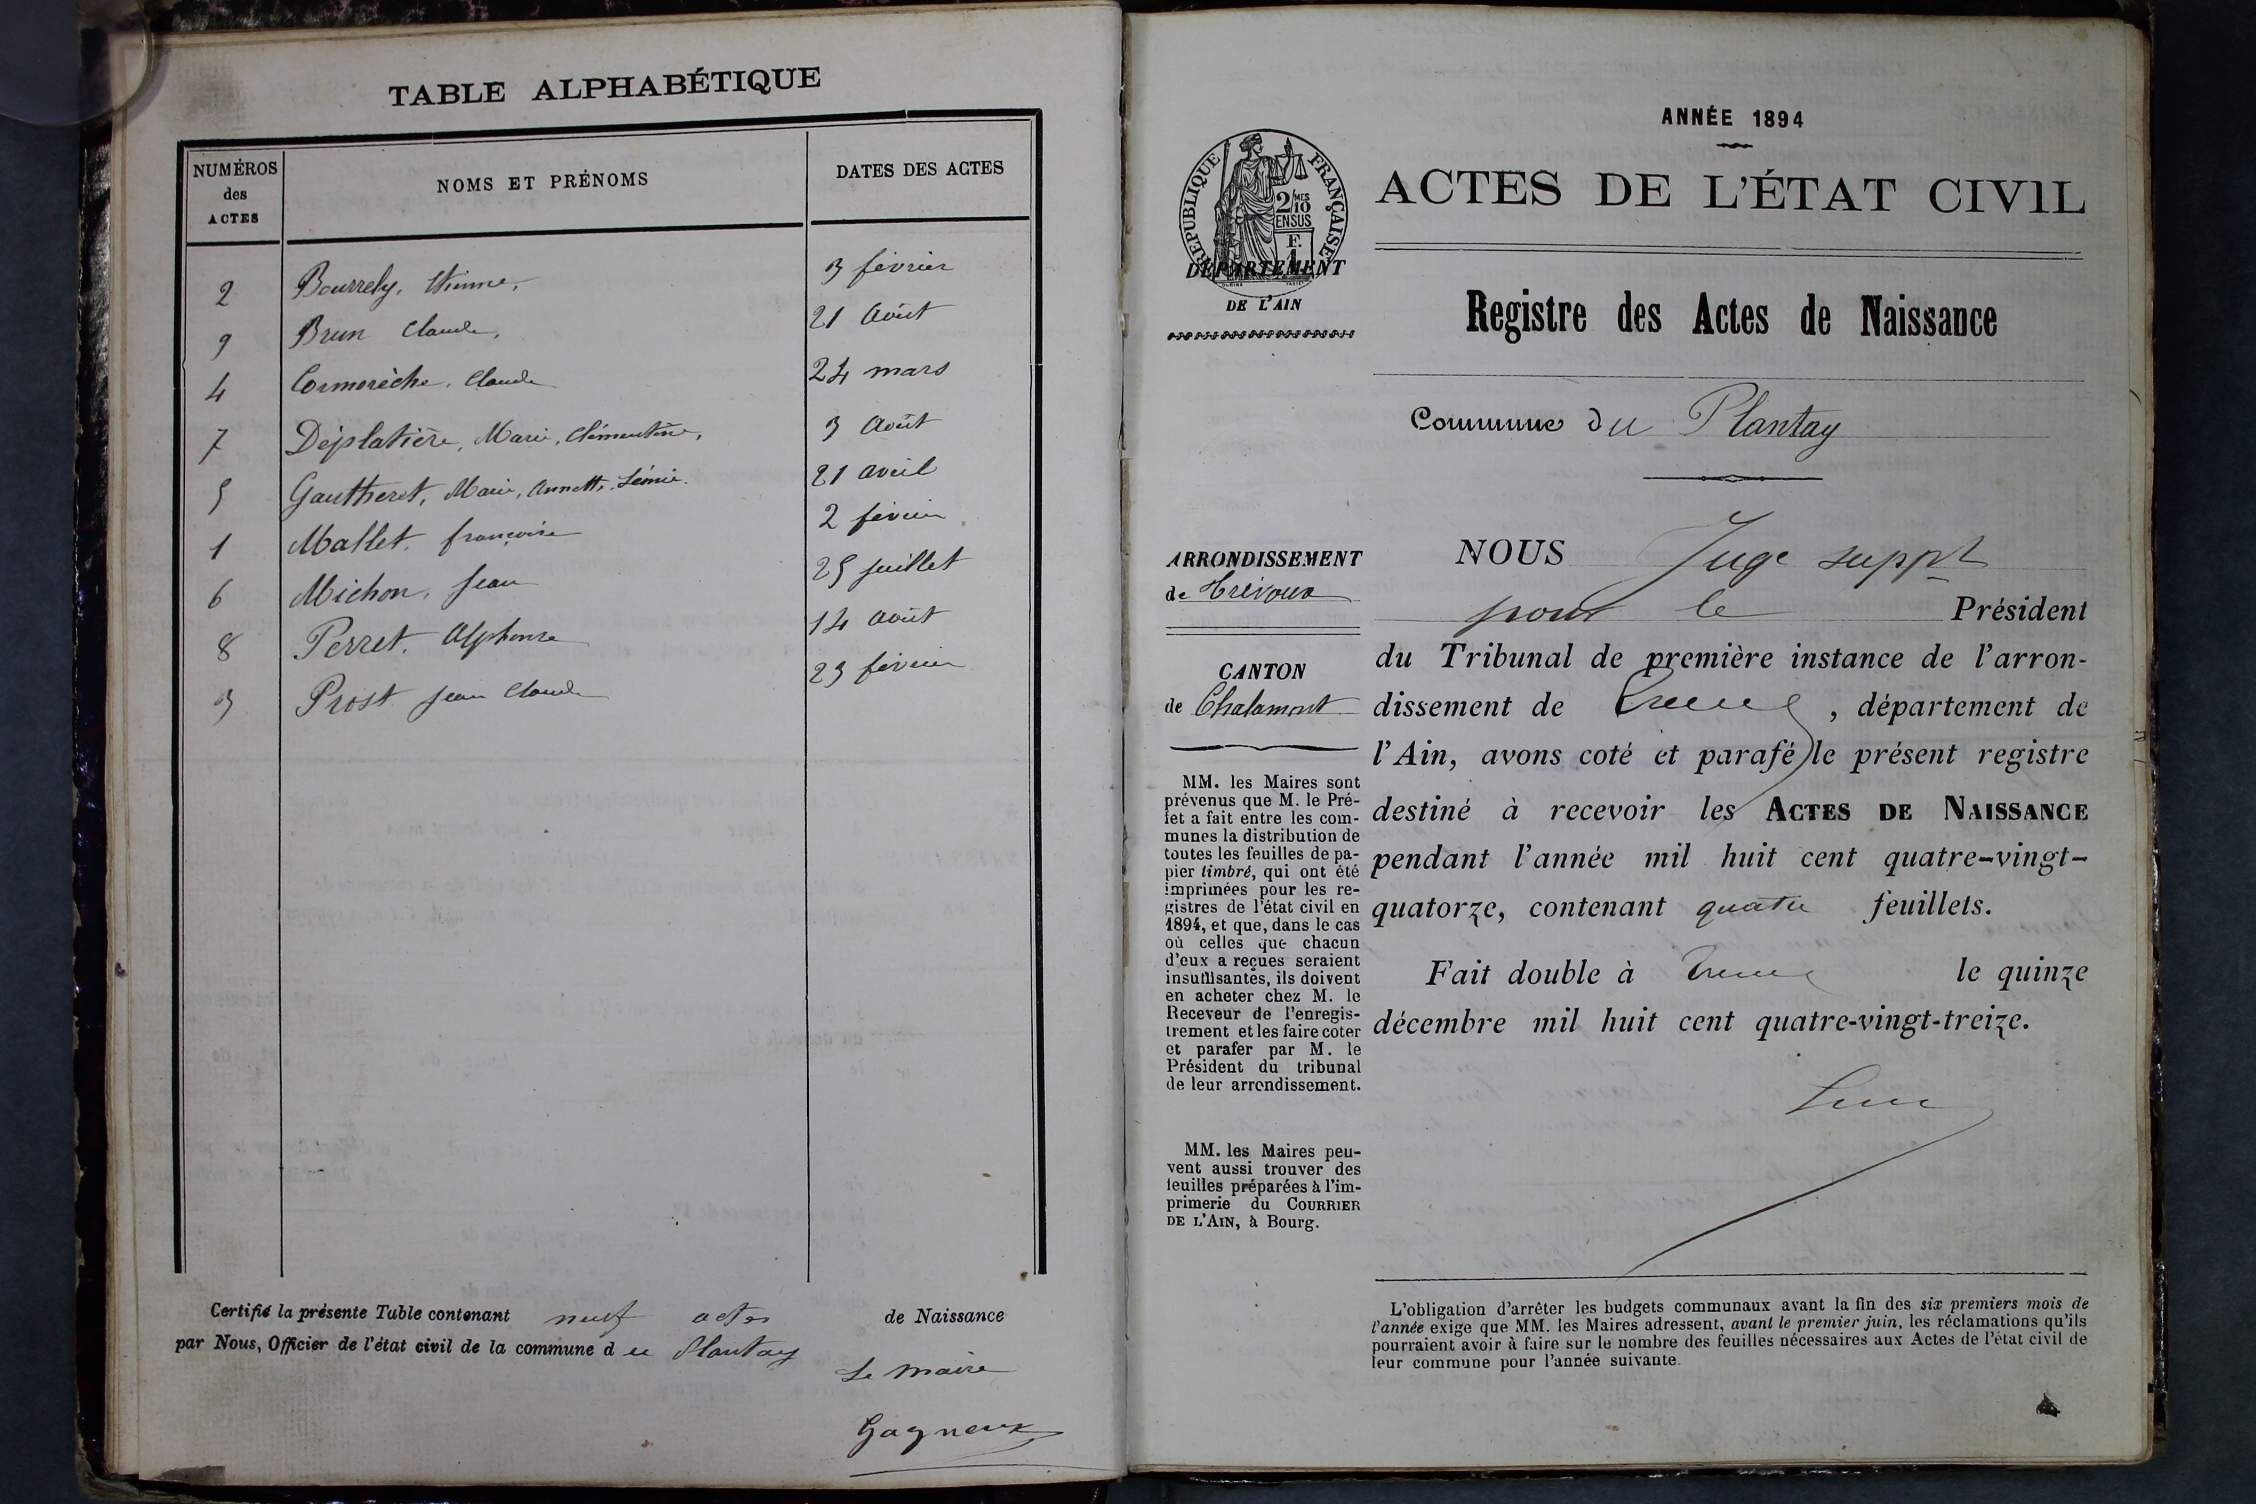 TABLE ALPHABÉTIQUE
NUMÉROS des ACTES NOMS ET PRÉNOMS DATES DES ACTES
2 Bourrely, Etienne, 3 février
9 Brun Claude, 21 Août
4 Cormorèche, Claude 24 mars
7 Déplatière, Marie, Clémentine, 3 Août
5 Gautheret, Marie, Annette, 21 avril
1 Mallet, françoise 2 février
6 Michon, Jean 25 juillet
8 Perret, Alphonse 14 août
3 Prost Jean Claude 23 février
Certifié la présente Table contenant neuf actes de Naissance
par Nous, Officier de l'état civil de la commune du Plantay
Le Maire
Gagneux
ANNÉE 1894
RÉPUBLIQUE FRANÇAISE
2/10MES
EN SUS
F.
1
DÉPARTEMENT
DE L'AIN
ACTES DE L'ÉTAT CIVIL
Registre des Actes de Naissance
Commune du Plantay
ARRONDISSEMENT
de Trévoux
CANTON
de Chalamont
MM. les Maires sont
prévenus que M. le Pré-
fet a fait entre les com-
munes la distribution de
toutes les feuilles de pa-
pier timbré, qui ont été
imprimées pour les re-
gistres de l'état civil en
1894, et que, dans le cas
où celles que chacun
d'eux a reçues seraient
insuffisantes, ils doivent
en acheter chez M. le
Receveur de l'enregis-
trement et les faire coter
et parafer par M. le
Président du tribunal
de leur arrondissement.
MM. les Maires peu-
vent aussi trouver des
feuilles préparées à l'im-
primerie du COURRIER
DE L'AIN, à Bourg.
NOUS Juge suppt
pour le Président
du Tribunal de première instance de l'arron-
dissement de Trévoux, département de
l'Ain, avons coté et parafé le présent registre
destiné à recevoir les ACTES DE NAISSANCE
pendant l'année mil huit cent quatre-vingt-
quatorze, contenant quatre feuillets.
Fait double à Trévoux le quinze
décembre mil huit cent quatre-vingt-treize.
L'obligation d'arrêter les budgets communaux avant la fin des six premiers mois de
l'année exige que MM. les Maires adressent, avant le premier juin, les réclamations qu'ils
pourraient avoir à faire sur le nombre des feuilles nécessaires aux Actes de l'état civil de
leur commune pour l'année suivante.